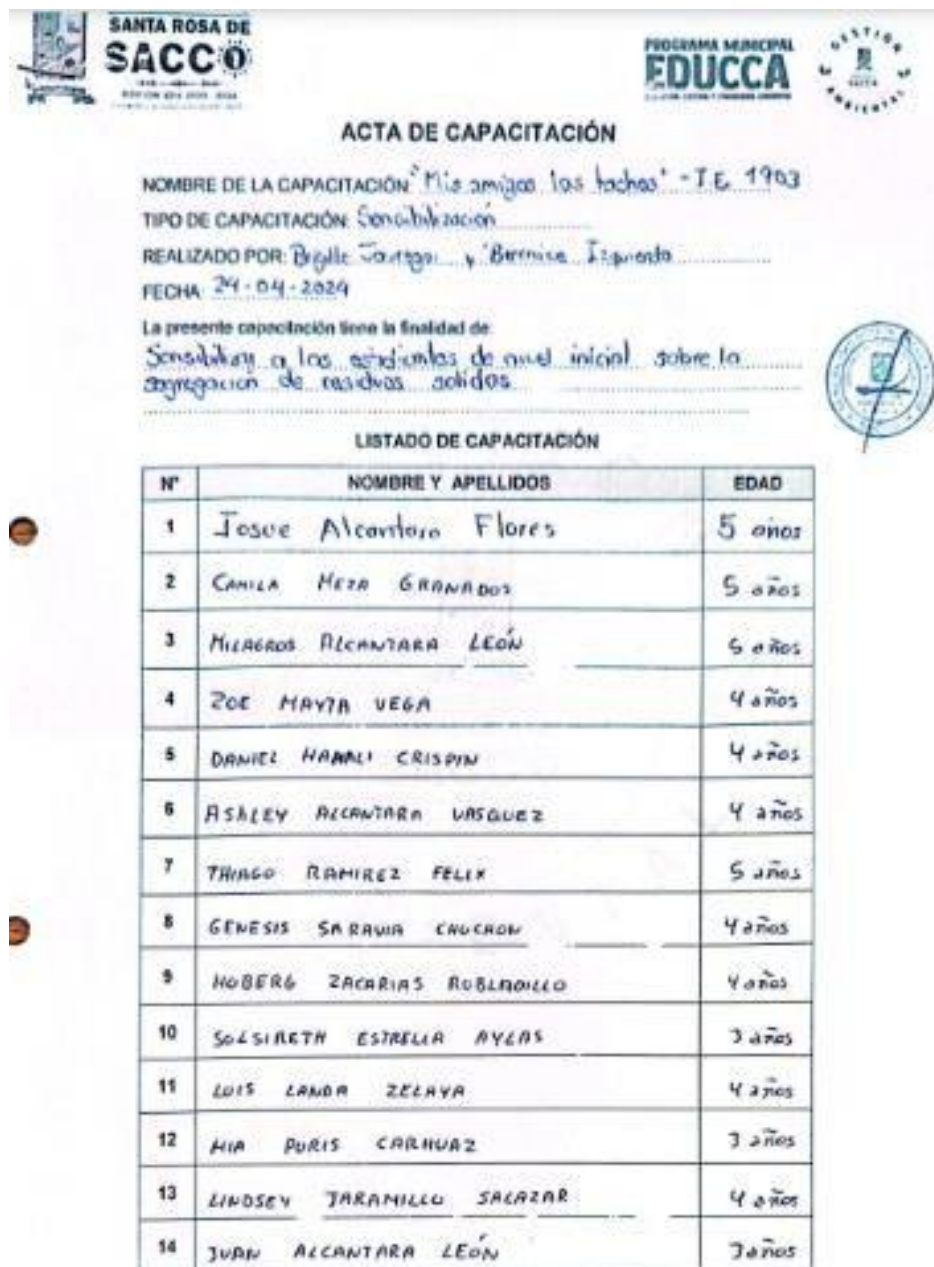 SANTA ROSA DE
SACCO
PROGRAMA MUNICIPAL
EDUCCA
GESTIÓN
AMBIENTAL
ACTA DE CAPACITACIÓN
NOMBRE DE LA CAPACITACIÓN: "Mis amigos los tachos" - I.E. 1903
TIPO DE CAPACITACIÓN: Sensibilización
REALIZADO POR: y Berenice Izquierdo
FECHA: 24-04-2024
La presente capacitación tiene la finalidad de:
Sensibilizar a los estudiantes de nivel inicial sobre la
segregación de residuos solidos
LISTADO DE CAPACITACIÓN
N° NOMBRE Y APELLIDOS EDAD
1 Josue Alcantara Flores 5 años
2 CAMILA MEZA GRANADOS 5 años
3 MILAGROS ALCANTARA LEÓN 5 años
4 ZOE MAYTA VEGA 4 años
5 DANIEL CRISPIN 4 años
6 ASHLEY ALCANTARA VASQUEZ 4 años
7 THIAGO RAMIREZ FELIX 5 años
8 GENESIS SARAVIA CHUCHON 4 años
9 HOBERG ZACARIAS ROBLADILLO 4 años
10 SOLSIRETH ESTRELLA AYLAS 3 años
11 LUIS LANDA ZELAYA 4 años
12 MIA PURIS CARHUAZ 3 años
13 LINDSEY JARAMILLO SALAZAR 4 años
14 JUAN ALCANTARA LEÓN 3 años